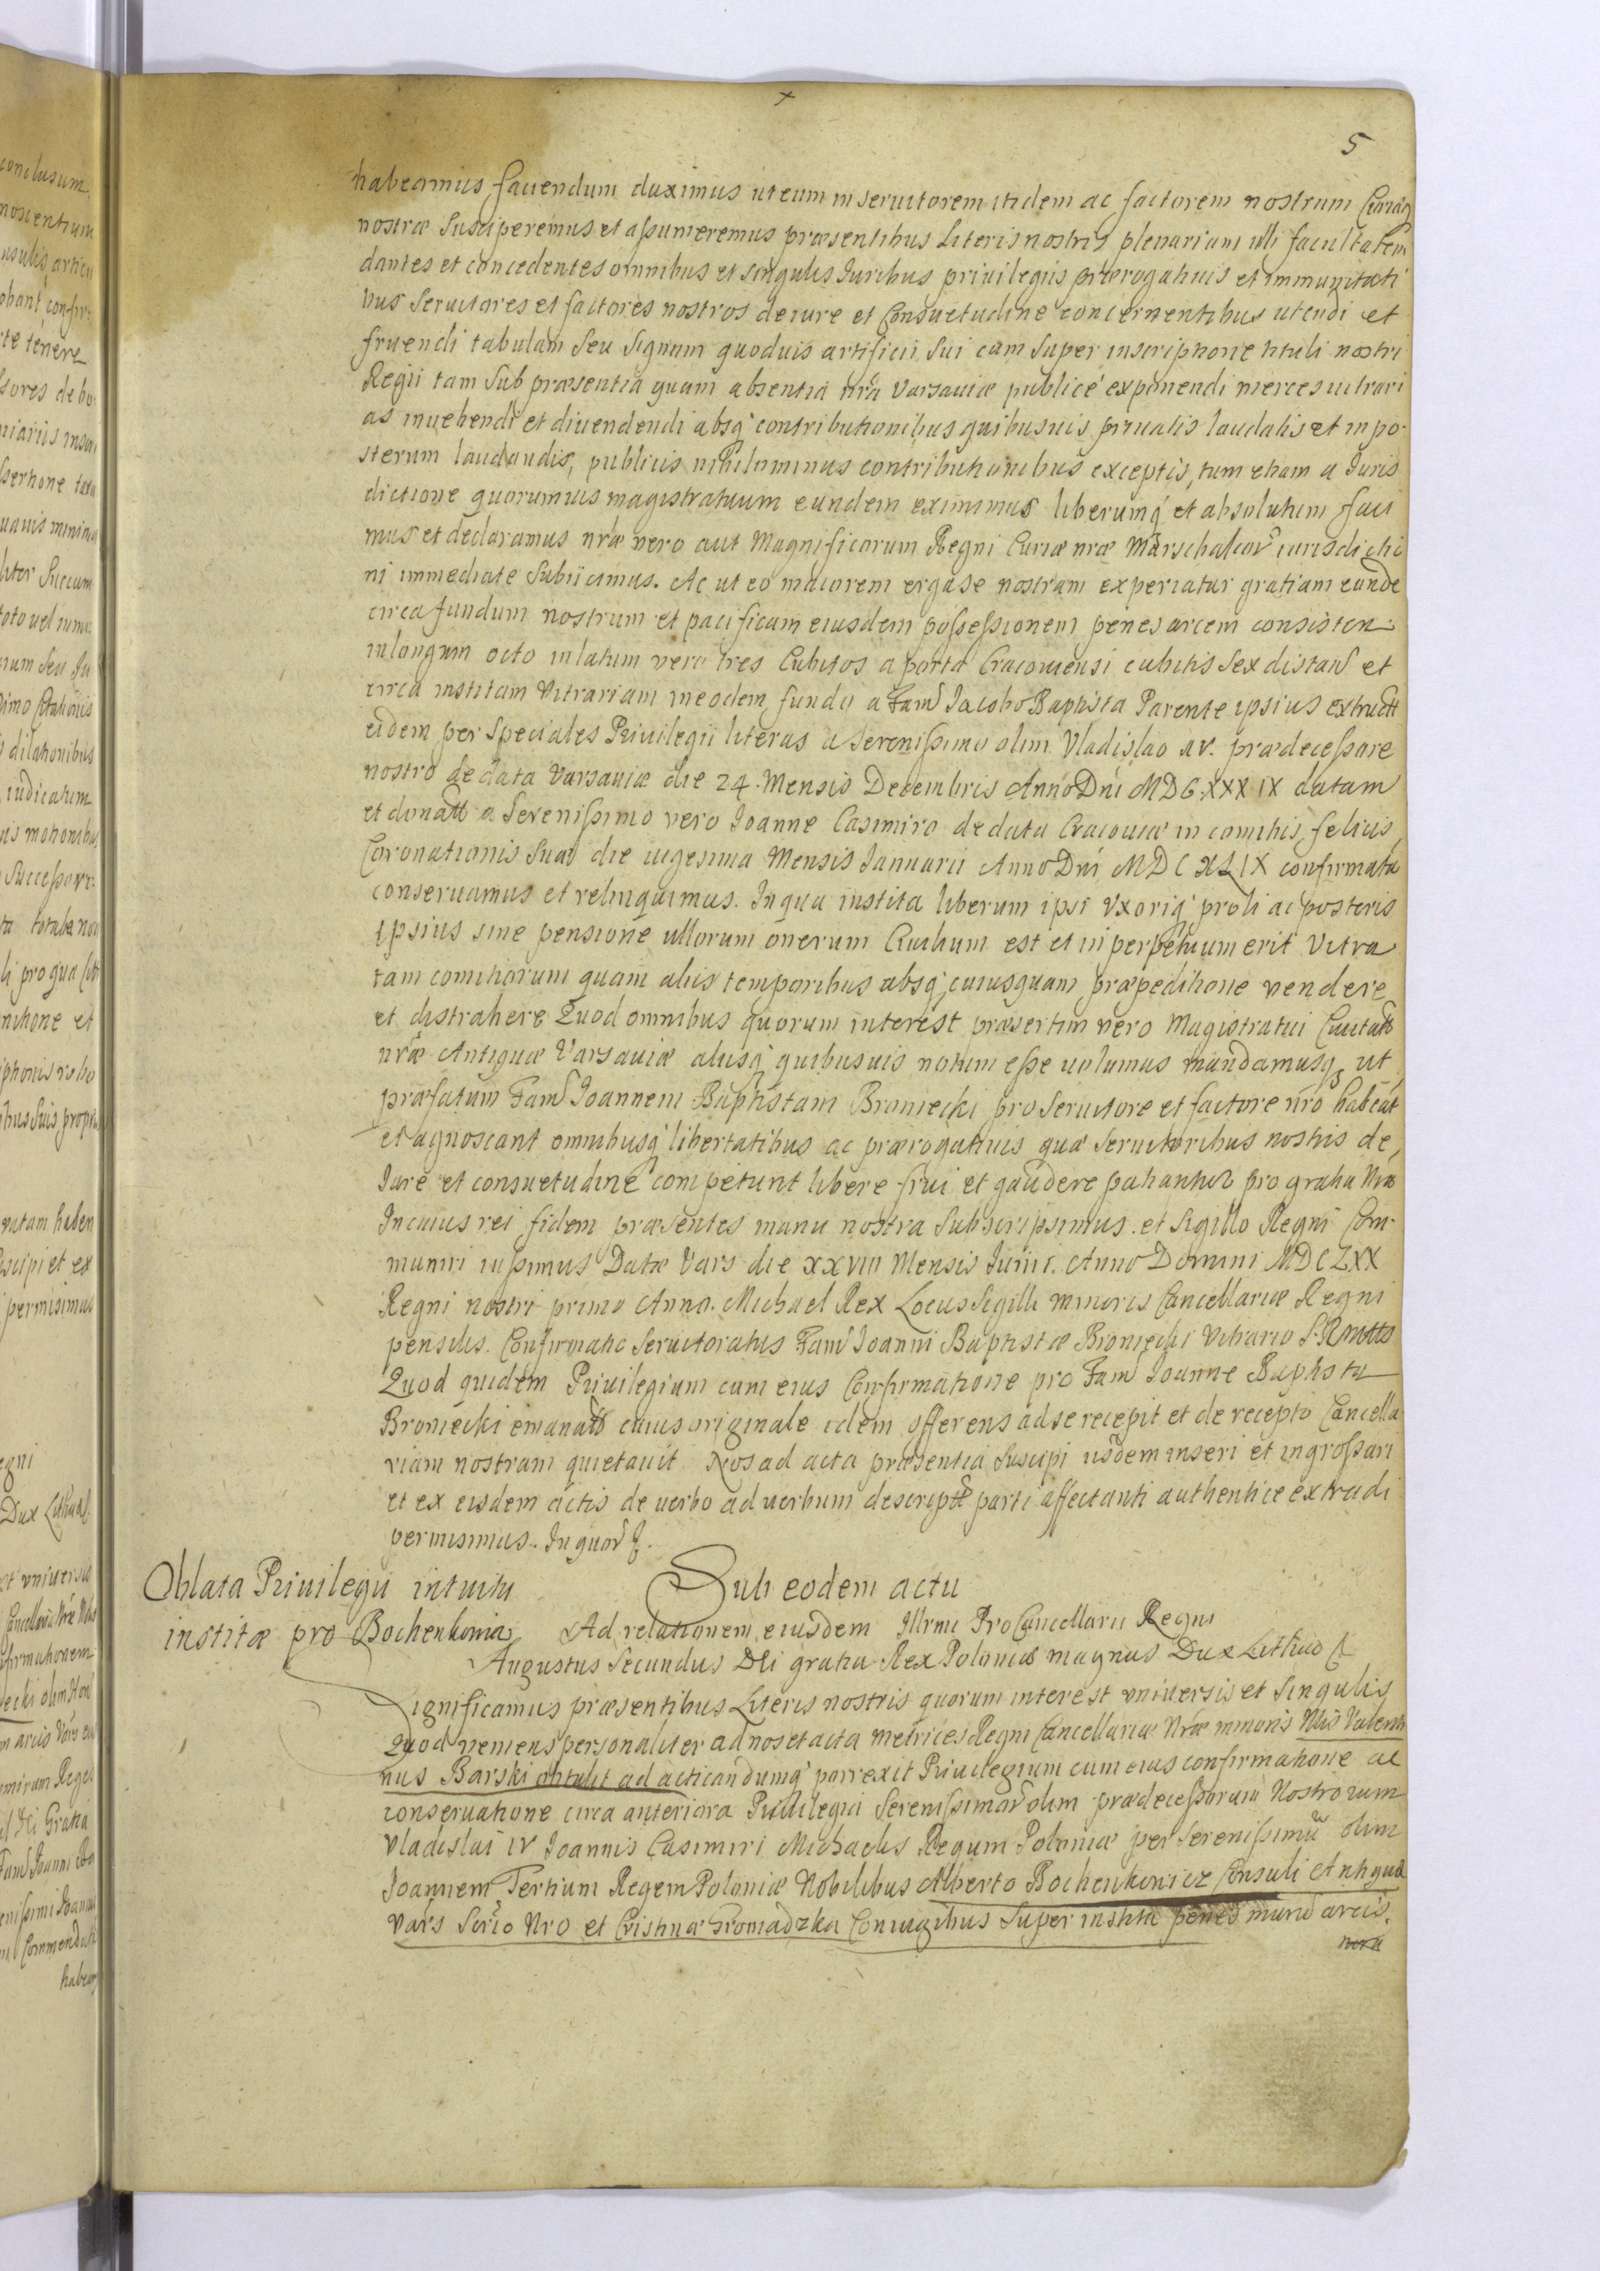 5
habeamus, fauendum duximus ut eum in seruitorem itidem ac factorem nostrum
nostræ susciperemus et assumeremus præsentibus Literis nostris plenariam illi facultatem
dantes et concedentes omnibus et singulis Iuribus priuilegiis prærogatiuis et immunitati
bus seruitores et factores nostros de iure et Consuetudine concernentibus utendi et
fruendi tabulam seu signum quoduis artificii sui cum super inscriptione tituli nostri
Regii tam sub præsentia quam absentia nrâ Varsauiæ publicé exponendi merces uitrari
as inuehendi et diuendendi absq' contributionibus quibusuis priuatis laudatis et in po-
sterum laudandis, publicis nihilominus contributionibus exceptis, tum etiam a Iuris
dictione quorumuis magistratuum eundem eximimus liberumq' et absolutum faci
mus et declaramus nræ vero aut Magnificorum Regni Curiæ nræ Marschalcor iurisdictio
ni immediate subiicimus. Ac ut eo maiorem erga se nostram experiatur gratiam eunde
circa fundum nostrum et pacificam eiusdem possessionem penes arcem consisten
in longum octo in latum vero tres Cubitos a porta Cracouiensi cubitis sex distan et
circa institam Vitrariam in eodem fundo a Fam Iacobo Baptista Parente ipsius extructt
eidem per speciales Priuilegii literas a serenissimo olim Vladislao IV. prædecessore
nostro de data Varsauiæ die 24. Mensis Decembris Anno Dni MDCXXXIX datam
et donatt a Serenissimo vero Ioanne Casimiro de data Cracouiæ in comitiis felicis
Coronationis suæ die uigesima Mensis Ianuarii Anno Dni MDCXLIX confirmata
conseruamus et relinquimus. In qua instita liberum ipsi Vxoriq' proli ac posteris
ipsius sine pensione ullorum onerum Ciuilium est et in perpetuum erit Vitra
tam comitiorum quam aliis temporibus absq' cuiusquam præpeditione vendere
et distrahere Quod omnibus quorum interest præsertim vero Magistratui Ciuitatt
nræ Antiquæ Varsauiæ aliisq' quibusuis notum esse uolumus mandamusq ut
præfatum Fam Ioannem Baptistam Broniecki pro seruitore et factore nro habeat
et agnoscant omnibusq' libertatibus ac prærogatiuis quæ seruitoribus nostris de
Iure et consuetudine competunt libere frui et gaudere patiantur pro gratia Nra
In cuius rei fidem præsentes manu nostra subscripsimus. et sigillo Regni Com-
muniri iussimus Datæ Vars die XXVIII Mensis Iunii. Anno Domini MDCLXX
Regni nostri primo Anno. Michael Rex Locus Sigilli minoris Cancellariæ Regni
pensilis. Confirmatio seruitoratus Fam Ioanni Baptistæ Broniecki Vitrario S. R Mttis
Quod quidem Priuilegium cum eius Confirmatione pro Fam Ioanne Baptista
Broniecki emanatt cuius originale idem offerens ad se recepit et de recepto Cancella
riam nostram quietauit Nos ad acta præsentia suscipi iisdem inseri et ingrossari
et ex eisdem actis de uerbo ad uerbum descriptt parti affectanti authentice extradi
permisimus. In quor
Oblata Priuilegii intuitu
institæ pro Bochenkouia
Sub eodem actu
Ad relationem eiusdem Illrmi ProCancellarii Regni
Augustus Secundus Dei gratia Rex Poloniæ magnus Dux Lithuo
Significamus præsentibus Literis nostris quorum interest vniuersis et singulis
Quod veniens personaliter ad nos et acta metrices Regni Cancellariæ Nræ minoris Nblis Valenti
nus Barski obtulit ad acticandumq' porrexit Priuilegium cum eius confirmatione ac
conseruatione circa anteriora Priuilegia Serenissimor olim prædecessorum Nostrorum
Vladislai IV Ioannis Casimiri Michaelis Regum Poloniæ per serenissimu olim
Ioannem Tertium Regem Poloniæ Nobilibus Alberto Bochenkowicz Consuli Antiqua
Vars Serio Nro et Cristinæ Gromadzka Coniugibus super instita penes muru arcis.